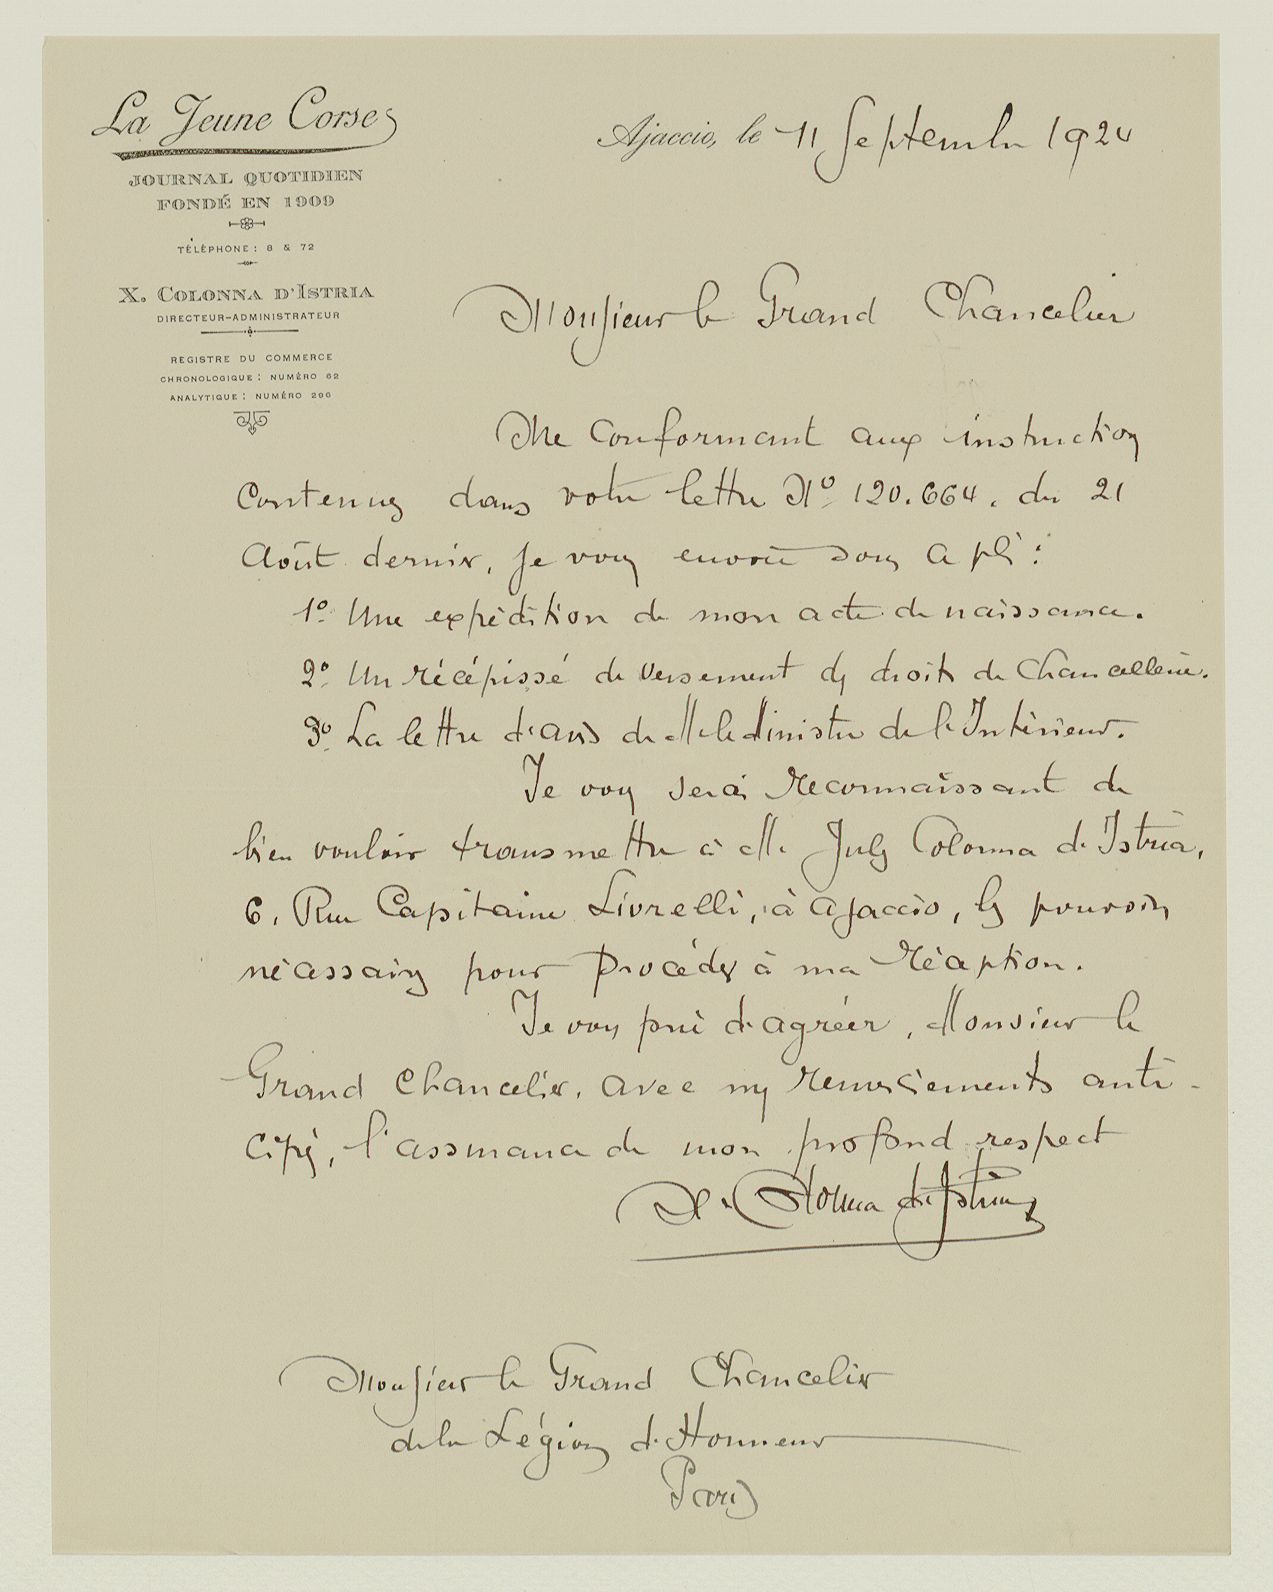 La Jeune Corse
JOURNAL QUOTIDIEN
FONDÉ EN 1909
TÉLÉPHONE : 8 & 72
X. COLONNA D'ISTRIA
DIRECTEUR-ADMINISTRATEUR
REGISTRE DU COMMERCE
CHRONOLOGIQUE : NUMÉRO 62
ANALYTIQUE : NUMÉRO 296
Ajaccio, le 11 Septembre 1924
Monsieur le Grand Chancelier
Me conformant aux instruction
contenues dans votre lettre No 120.664. du 21
Août dernier, je vous envoie sous ce pli :
1o Une expédition de mon acte de naissance.
2o Un récépissé de versement des droits de Chancellerie.
3o La lettre d'avis de M. le Ministre de l'Intérieur.
Je vous serai reconnaissant de
bien vouloir transmettre à M. Jules Colonna d'Istria,
6, Rue Capitaine Livrelli, à Ajaccio, les pouvoirs
nécessaires pour procéder à ma réception.
Je vous prie d'agréer, Monsieur le
Grand Chancelier, avec mes remerciements anti-
cipés, l'assurance de mon profond respect
X. Colonna d'Istria
Monsieur le Grand Chancelier
de la Légion d'Honneur
Paris